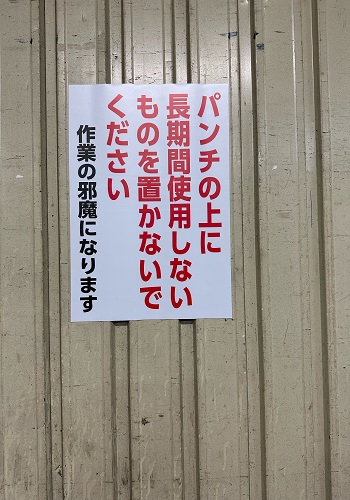 パンチの上に
長期間使用しない
ものを置かないで
ください
作業の邪魔になります